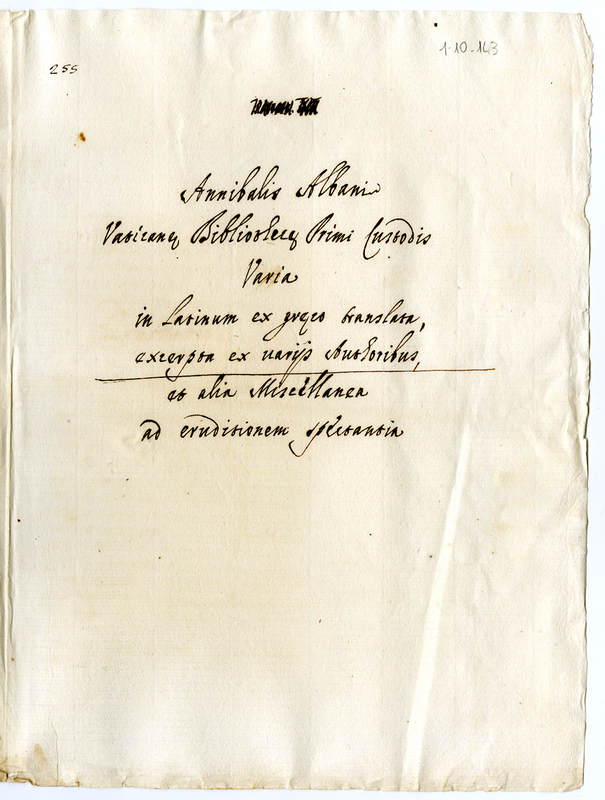 1-10-143
255
Annibalis Albani
Vaticanę Bibliothecę Primi Custodis
Varia
in Latinum ex gręco translata,
excerpta ex varijs Authoribus,
et alia Miscellanea
ad eruditionem spectantia